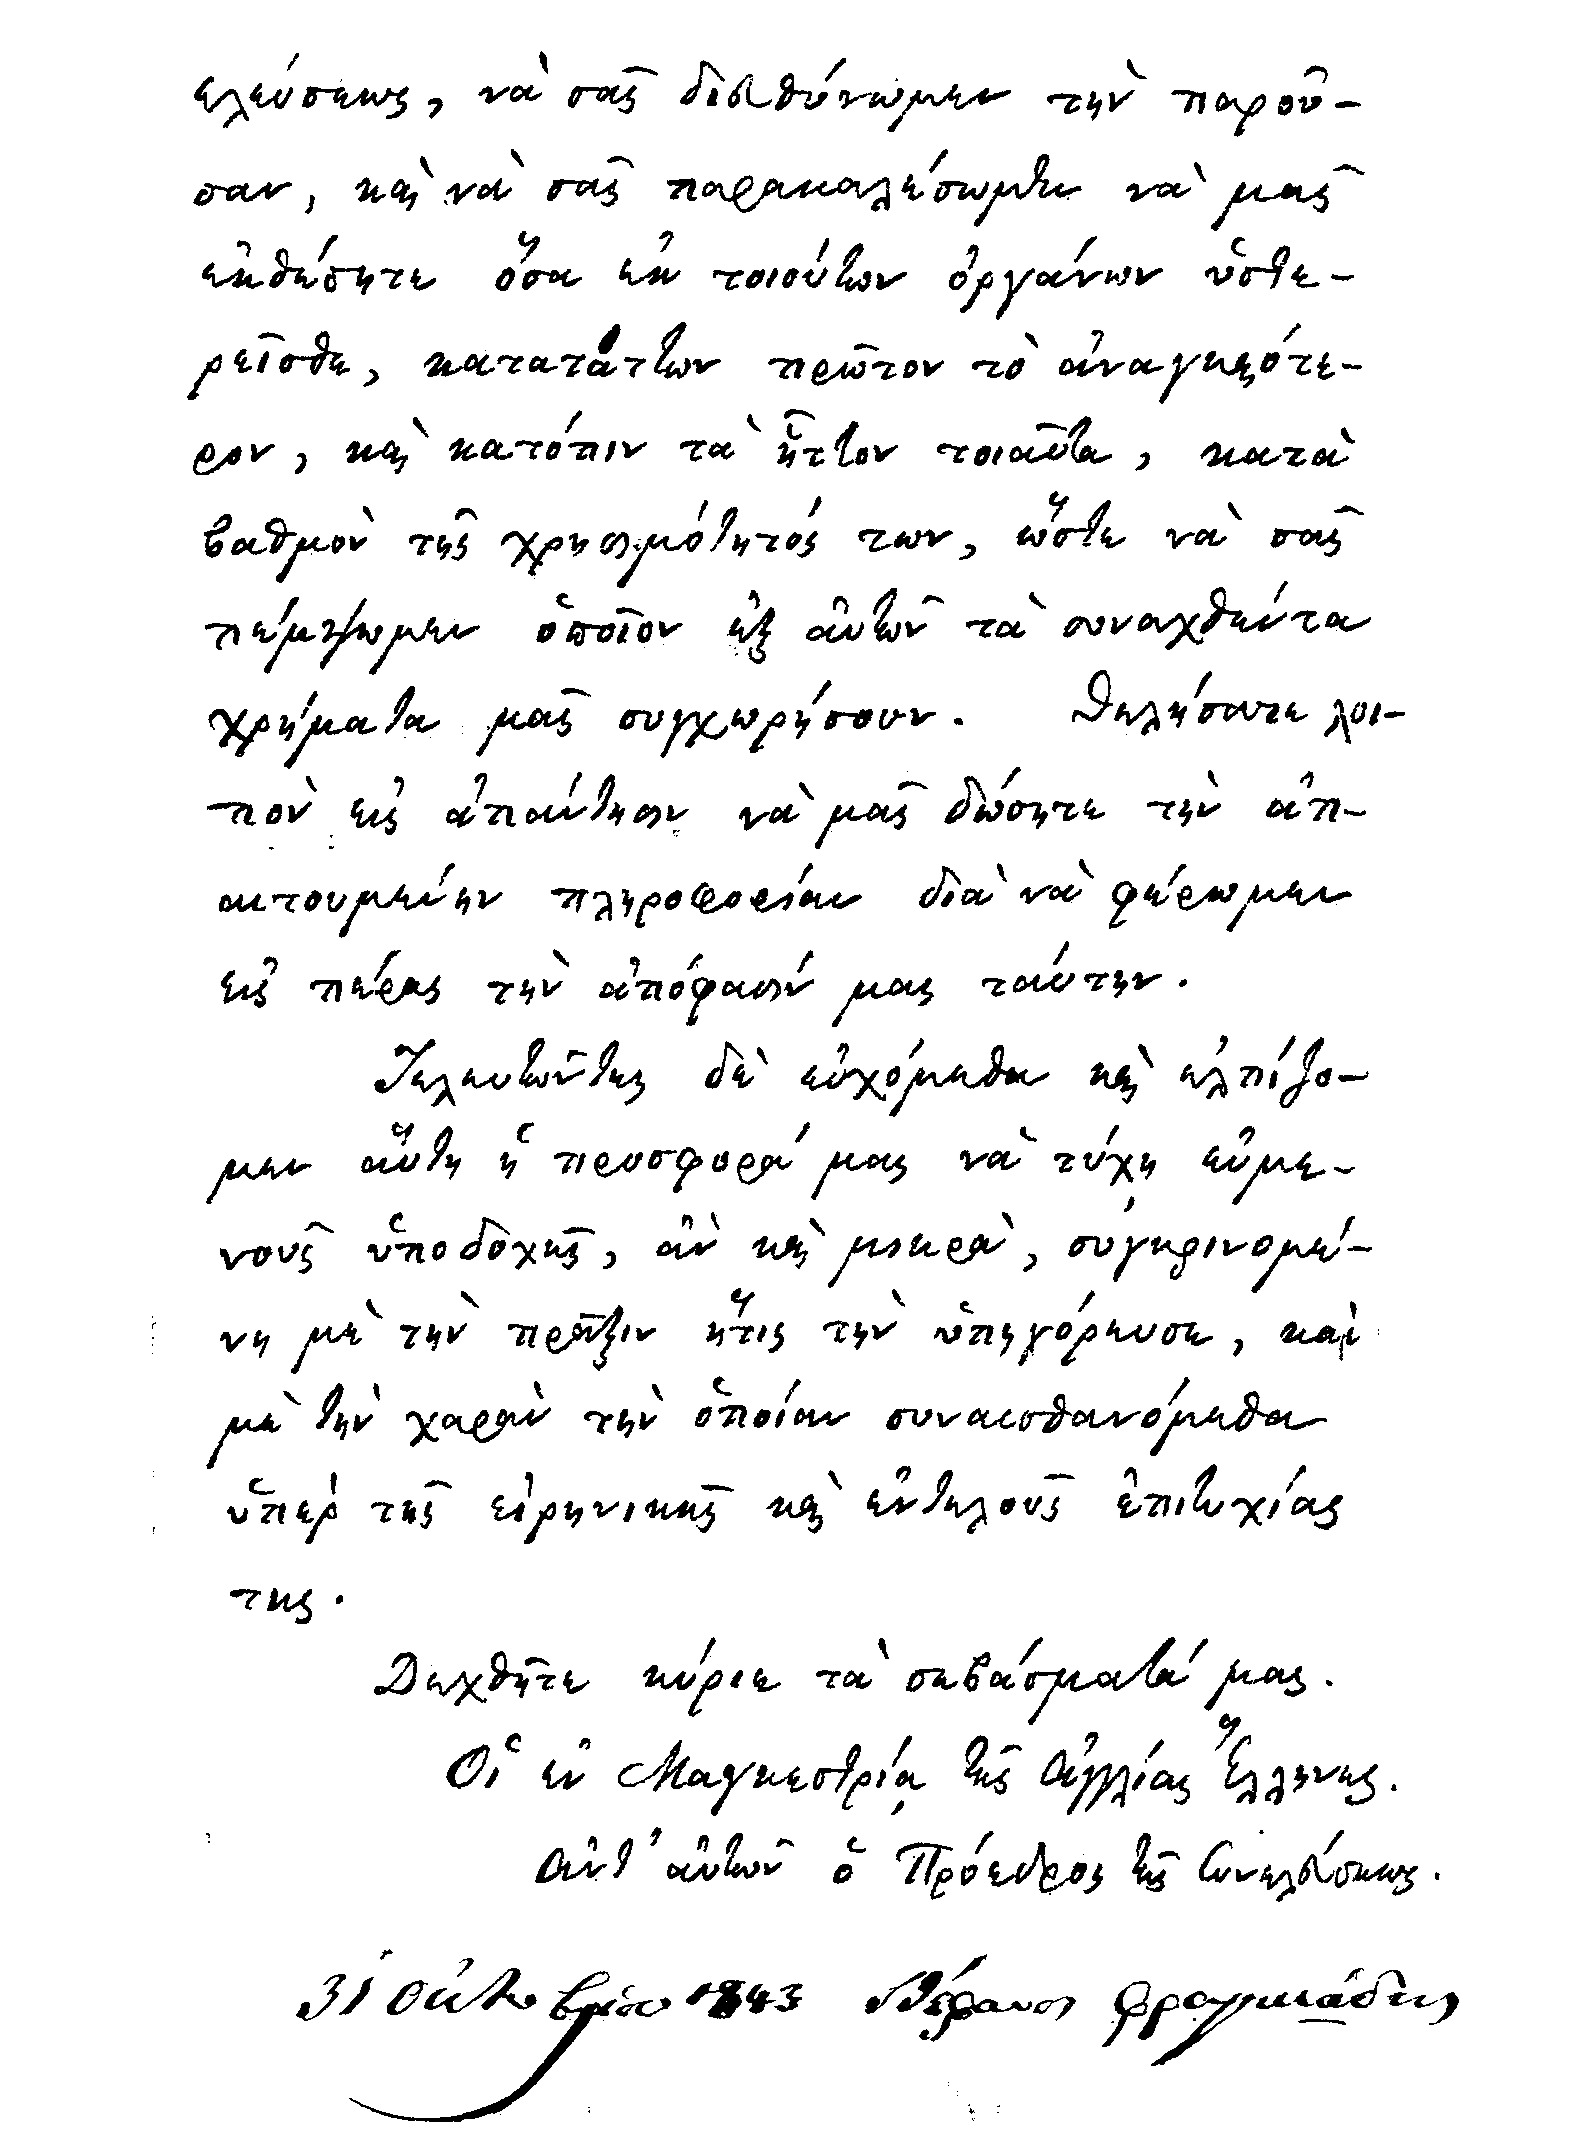 ελεύσεως, νὰ σᾶς διευθύνωμεν τὴν παροῦ-
σαν, καὶ νὰ σᾶς παρακαλέσωμεν νὰ μᾶς
ἐκθέσητε ὅσα ἐκ τοιούτων ὀργάνων ὑστε-
ρεῖσθε, κατατάττων πρῶτον τὸ ἀναγκαιότε-
ρον, καὶ κατόπιν τὰ ἧττον τοιαῦτα, κατὰ
βαθμὸν τῆς χρησιμότητός των, ὥστε νὰ σᾶς
πέμψωμεν ὁποῖον ἐξ αὐτῶν τὰ συναχθέντα
χρήματα μᾶς συγχωρήσουν. Θελήσατε λοι-
πὸν εἰς ἀπάντησιν νὰ μᾶς δώσητε τὴν ἀπ-
αιτουμένην πληροφορίαν διὰ νὰ φέρωμεν
εἰς πέρας τὴν ἀπόφασίν μας ταύτην.
Τελευτῶντες δὲ εὐχόμεθα καὶ ἐλπίζο-
μεν αὕτη ἡ προσφορά μας νὰ τύχη εὐμε-
νοῦς ὑποδοχῆς, ἂν καὶ μικρὰ, συγκρινομέ-
νη μὲ τὴν πρᾶξιν ἥτις τὴν ὑπηγόρευσε, καὶ
μὲ τὴν χαρὰν τὴν ὁποίαν συναισθανόμεθα
ὑπὲρ τῆς εἰρηνικῆς καὶ ἐντελοῦς ἐπιτυχίας
της.
Δεχθῆτε κύριε τὰ σεβάσματά μας.
Οἱ ἐν Μαγκεστρίᾳ τῆς Ἀγγλίας Ἕλληνες.
Ἀντ' αὐτῶν ὁ Πρόεδρος τῆς Συνελεύσεως.
31 Ὀκτωβρίου 1843 Στέφανος Φραγκιάδης